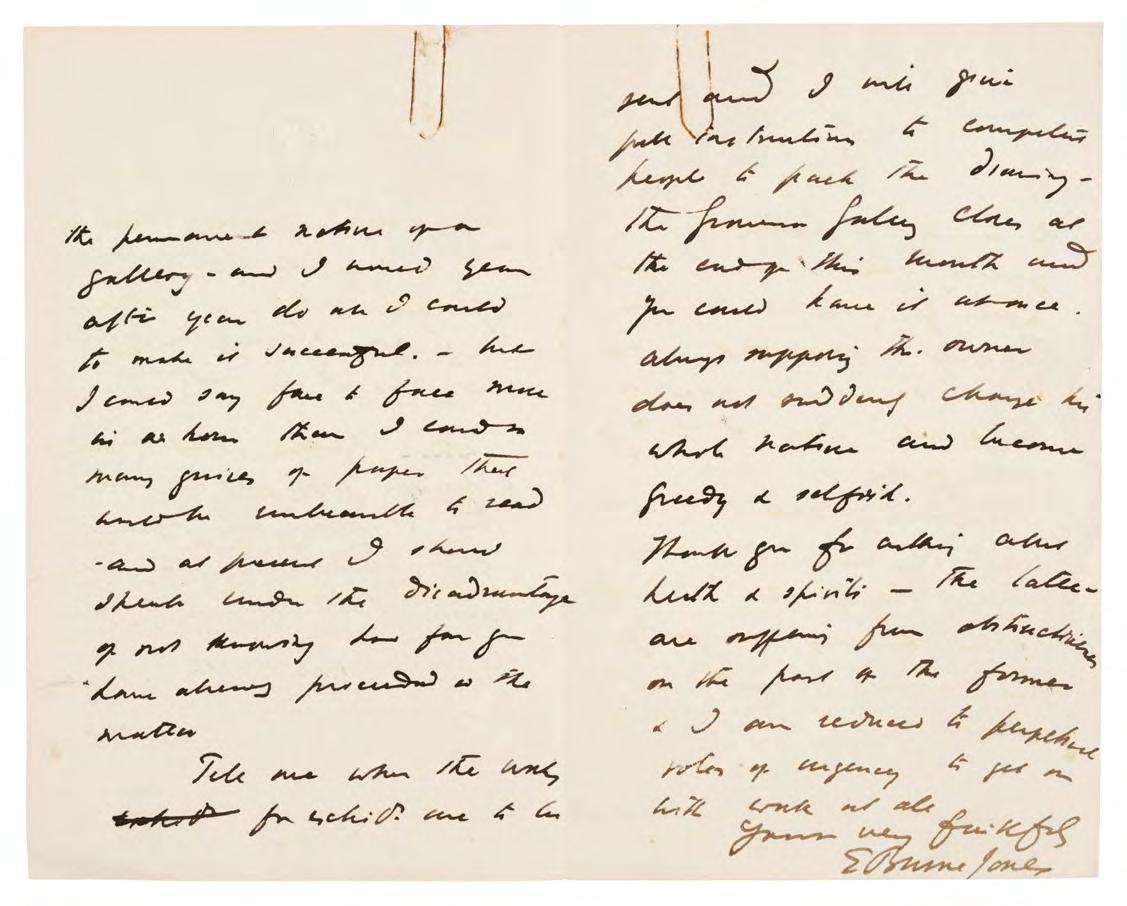 the permanent nature of a
gallery - and I would year
after year do all I could
to make it successful. - but
I could say face to face more
in an hour than I could in
many quires of paper that
would be unbearable to read
- and at present I should
speak under the disadvantage
of not knowing how far you
have already proceeded in the
matter
Tell me when the works
for exhib: are to be
sent and I will give
full instructions to competent
people to pack the drawing -
the Grosvenor Gallery closes at
the end of this month and
you could have it at once.
always supposing the owner
does not suddenly change his
whole nature and become
greedy & selfish.
Thank you for asking about
health & spirits - the latter
are suffering from obstructiveness
on the part of the former
& I am reduced to perpetual
votes of urgency to get on
with work at all
Yours very faithfully
E Burne Jones